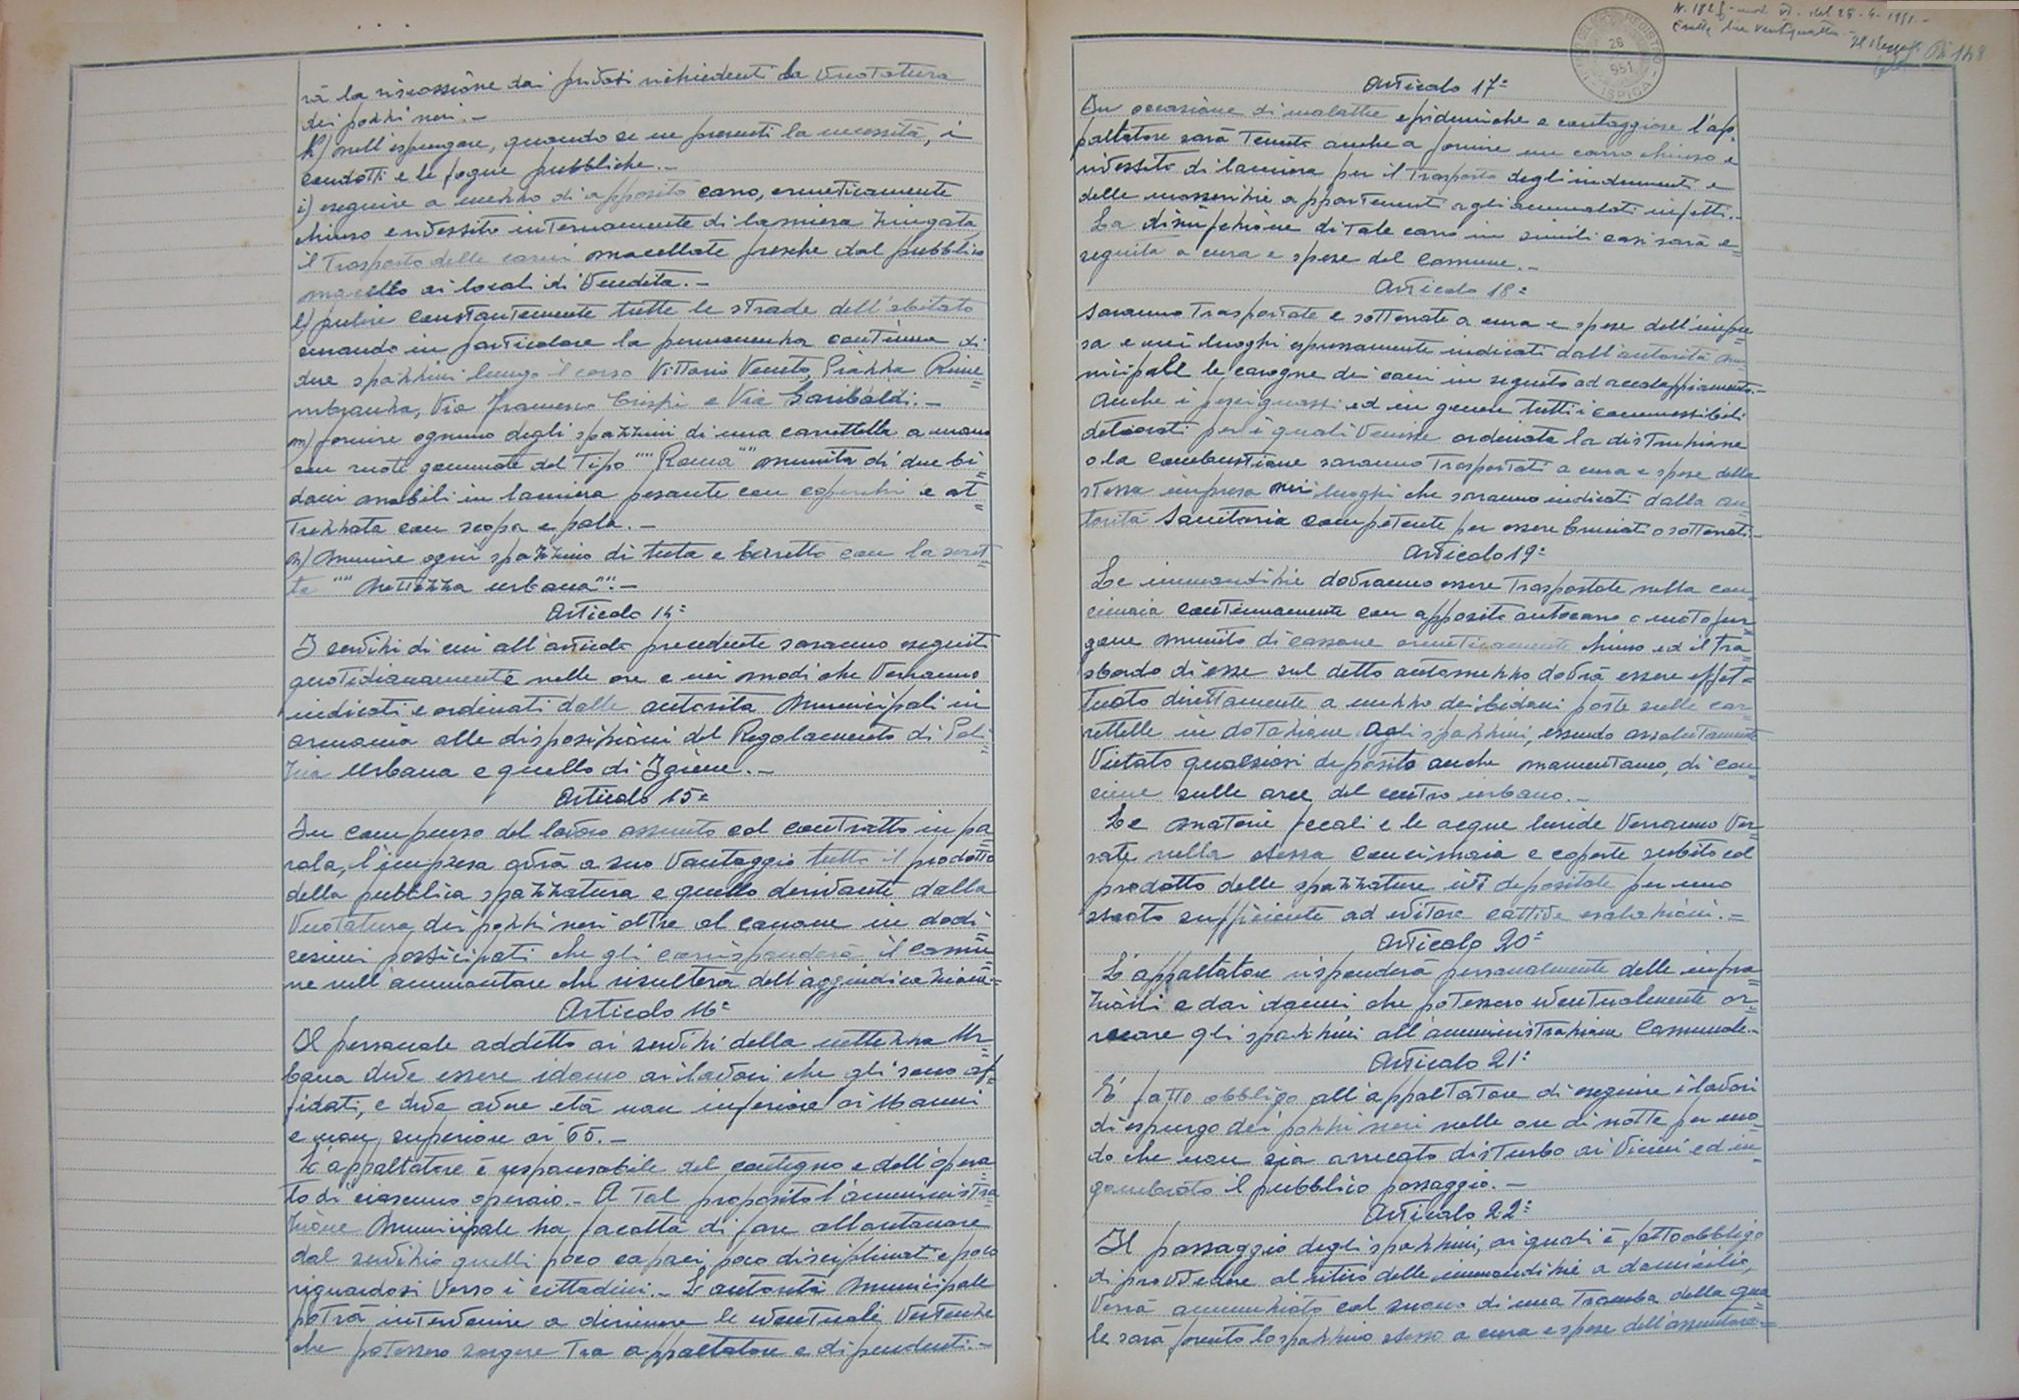 rà la riscossione dai privati richiedenti la vuotatura
dei pozzi neri.-
h) nell'espurgare, quando se ne presenti la necessità, i
condotti e le fogne pubbliche.-
i) eseguire a mezzo di apposito carro, ermeticamente
chiuso e rivestito internamente di lamiera zingata
il trasporto delle carni macellate fresche dal pubblico
macello ai locali di vendita.-
l) pulire constantemente tutte le strade dell'abitato
curando in particolare la permanenza continua di
due spazzini lungo il corso Vittorio Veneto, Piazza Rime=
mbranza, Via Francesco Crispi e Via Garibaldi.-
m) fornire ognuno degli spazzini di una carrettella a mano
con ruote gommate del tipo ""Roma"" munita di due bi=
doni mobili in lamiera pesante con coperchi e at=
trezzata con scopa e pala.-
n) munire ogni spazzino di tuta e berretto con la scrit=
ta ""Nettezza urbana"".-
Articolo 14°
I servizi di cui all'articolo precedente saranno eseguiti
quotidianamente nelle ore e nei modi che verranno
indicati e ordinati dalle autorità Municipali in
armonia alle disposizioni del Regolamento di Poli=
zia Urbana e quello di Igiene.-
Articolo 15°
In compenso del lavoro assunto col contratto in pa=
rola, l'impresa avrà a suo vantaggio tutto il prodotto
della pubblica spazzatura e quello derivante dalla
vuotatura dei pozzi neri oltre al canone in dodi=
cesimi posticipati che gli corrisponderà il Comu=
ne nell'ammontare che risulterà dall'aggiudicazione.-
Articolo 16°
Il personale addetto ai servizi della nettezza Ur=
bana deve essere idoneo ai lavori che gli sono af=
fidati, e deve avere età non inferiore ai 16 anni
e non superiore ai 65.-
L'appaltatore è responsabile del contegno e dell'opera=
to di ciascuno operaio.- A tal proposito l'amministra=
zione Municipale ha facoltà di fare allontanare
dal servizio quelli poco capaci, poco disciplinati e poco
riguardosi verso i cittadini.- L'autorità Municipale
potrà intervenire a dirimere le eventuali vertenze
che potessero sorgere tra appaltatore e dipendenti.-
N. 182 del 28-4-1951.-
148
26
951
ISPICA
Articolo 17°
In occasione di malattie epidemiche e contaggiose l'ap=
paltatore sarà tenuto anche a fornire un carro chiuso e
rivestito di lamiera per il trasporto degli indumenti e
delle masserizie appartenenti agli ammalati infetti.-
La disinfezione di tale carro in simili casi sarà e=
seguita a cura e spese del Comune.-
Articolo 18°
Saranno trasportate e sotterrate a cura e spese dell'impre=
sa e nei luoghi espressamente indicati dall'autorità mu=
nicipale le carogne dei cani in seguito ad accalappiamento.-
Anche i pesci guasti ed in genere tutti i commestibili
deteriorati per i quali venisse ordinata la distruzione
o la combustione saranno trasportati a cura e spese della
stessa impresa nei luoghi che saranno indicati dalla au=
torità Sanitaria competente per essere bruciati o sotterrati.-
Articolo 19°
Le immondizie dovranno essere trasportate nella con=
cimaia continuamente con apposito autocarro o motofur=
gone munito di cassone ermeticamente chiuso ed il tra=
sbordo di esse sul detto automezzo dovrà essere effet=
tuato direttamente a mezzo dei bidoni posti sulle car=
rettelle in dotazione agli spazzini, essendo assolutamente
vietato qualsiasi deposito anche momentaneo, di con=
cime sulle aree del centro urbano.-
Le materie fecali e le acque luride verranno ver=
sate nella stessa concimaia e coperte subito col
prodotto delle spazzature ivi depositate per uno
strato sufficiente ad evitare cattive esalazioni.-
Articolo 20°
L'appaltatore risponderà personalmente delle infra=
zioni e dai danni che potessero eventualmente ar=
recare gli spazzini all'amministrazione Comunale.-
Articolo 21°
E' fatto obbligo all'appaltatore di eseguire i lavori
di espurgo dei pozzi neri nelle ore di notte per mo=
do che non sia arrecato disturbo ai vicini ed in=
gombrato il pubblico passaggio.-
Articolo 22°
Il passaggio degli spazzini, ai quali è fatto obbligo
di provvedere al ritiro delle immondizie a domicilio,
verrà annunziato col suono di una tromba della qua=
le sarà fornito lo spazzino stesso a cura e spese dell'assuntore.=